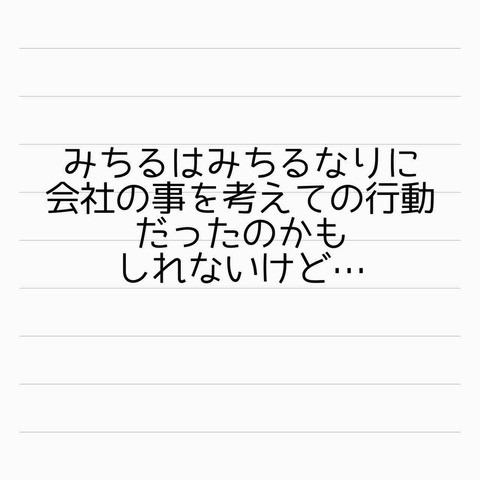 みちるはみちるなりに
会社の事を考えての行動
だったのかも
しれないけど…